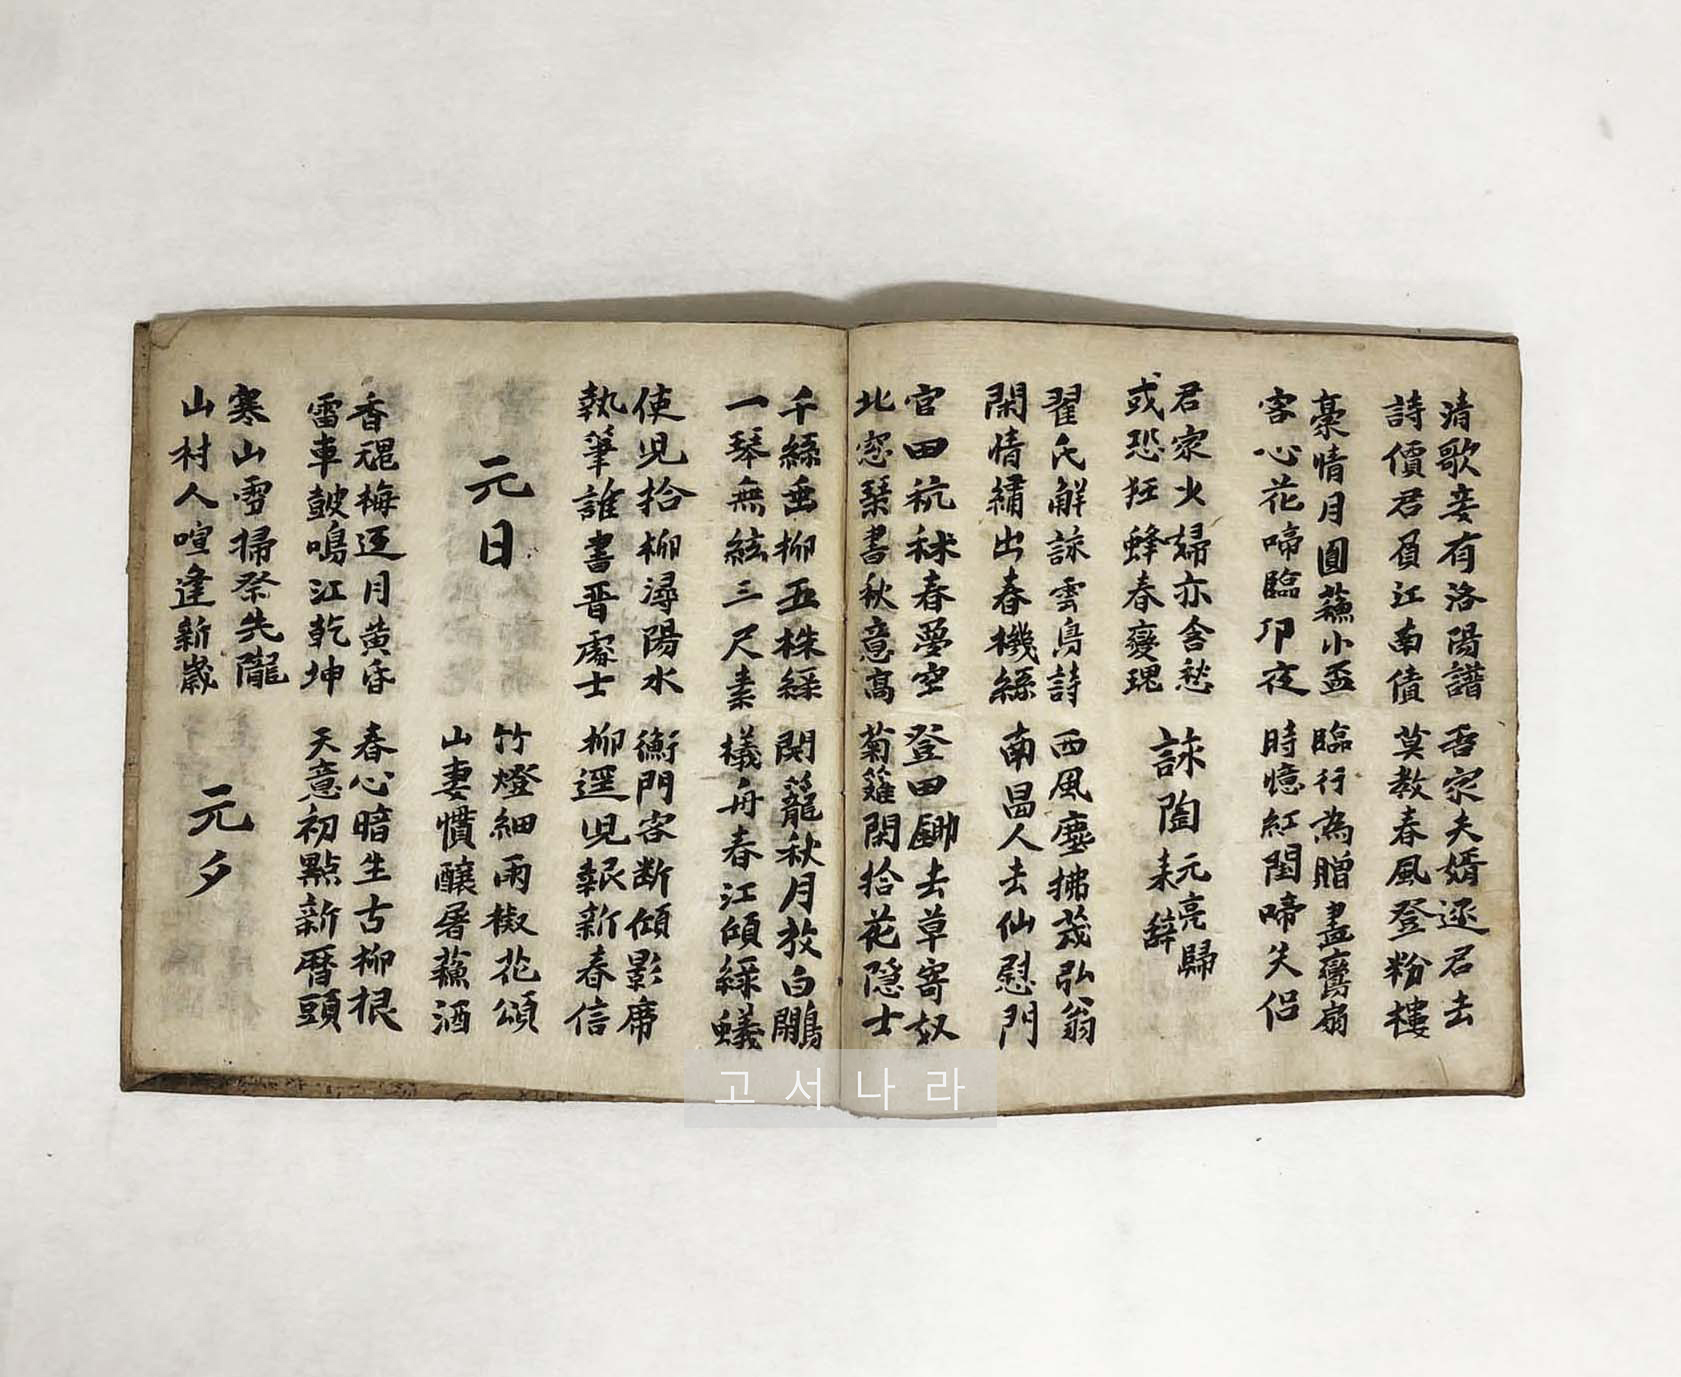 清歌妾有洛陽譜
詩價君負江南債
吾家夫婿逐君去
莫教春風登粉樓
藁情月圓蘓小盃
客心花啼臨卭夜
臨行為贈畫鸞扇
時憶紅閨啼失侶
君家少婦亦含愁
或恐狂蜂春變瑰
詠陶元亮歸来辭
翟氏解詠雲鳥詩
閑情繡出春機絲
西風塵拂茂弘翁
南昌人去仙慰門
官田秔秫春夢空
北窓琹書秋意高
登田鋤去草寄奴
菊籬閑拾花隠士
千絲垂柳五株綠
一琴無絃三尺素
閑籠秋月放白鷴
檥舟春江傾綠蟻
使児拾柳潯陽水
執筆誰書晋處士
衡門客断傾影席
柳逕児報新春信
元日
竹燈細雨椒花頌
山妻慣釀屠蘓酒
香魂梅逕月黄昏
雷車鼓鳴江乾坤
春心暗生古柳根
天意初點新暦頭
寒山雪掃祭先隴
山村人喧逢新歲
元夕
고서나라